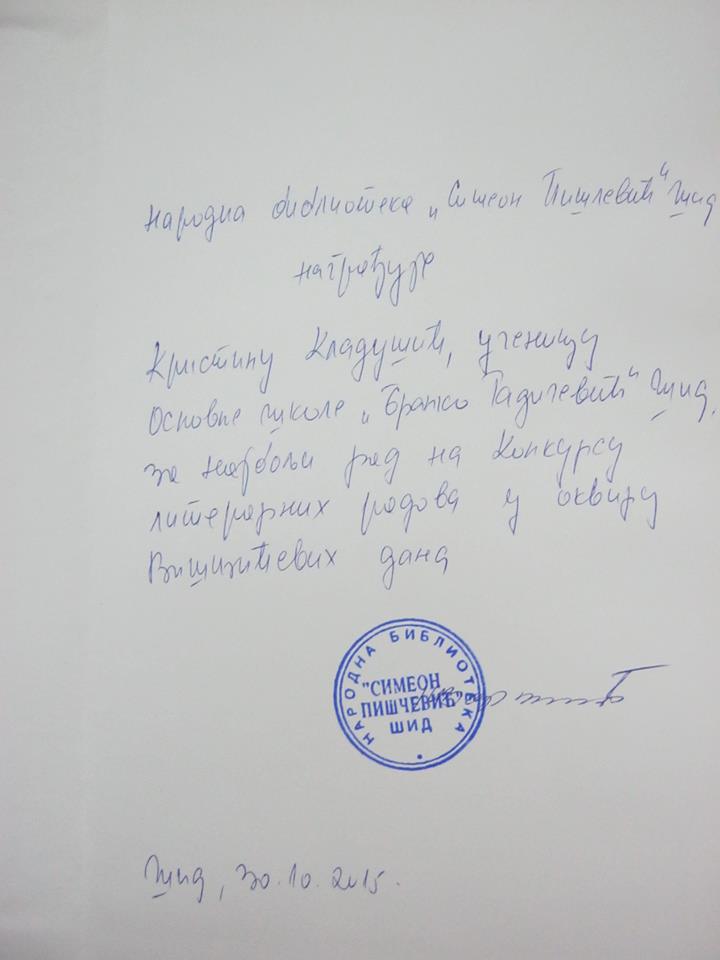 Народна библиотека „Симеон Пишчевић“ Шид
награђује
Кристину Кладушић, ученицу
Основне школе „Бранко Радичевић“ Шид,
за најбољи рад на Конкурсу
литерарних радова у оквиру
Вишњићевих дана
НАРОДНА БИБЛИОТЕКА
"СИМЕОН
ПИШЧЕВИЋ"
ШИД
Шид, 30.10.2015.